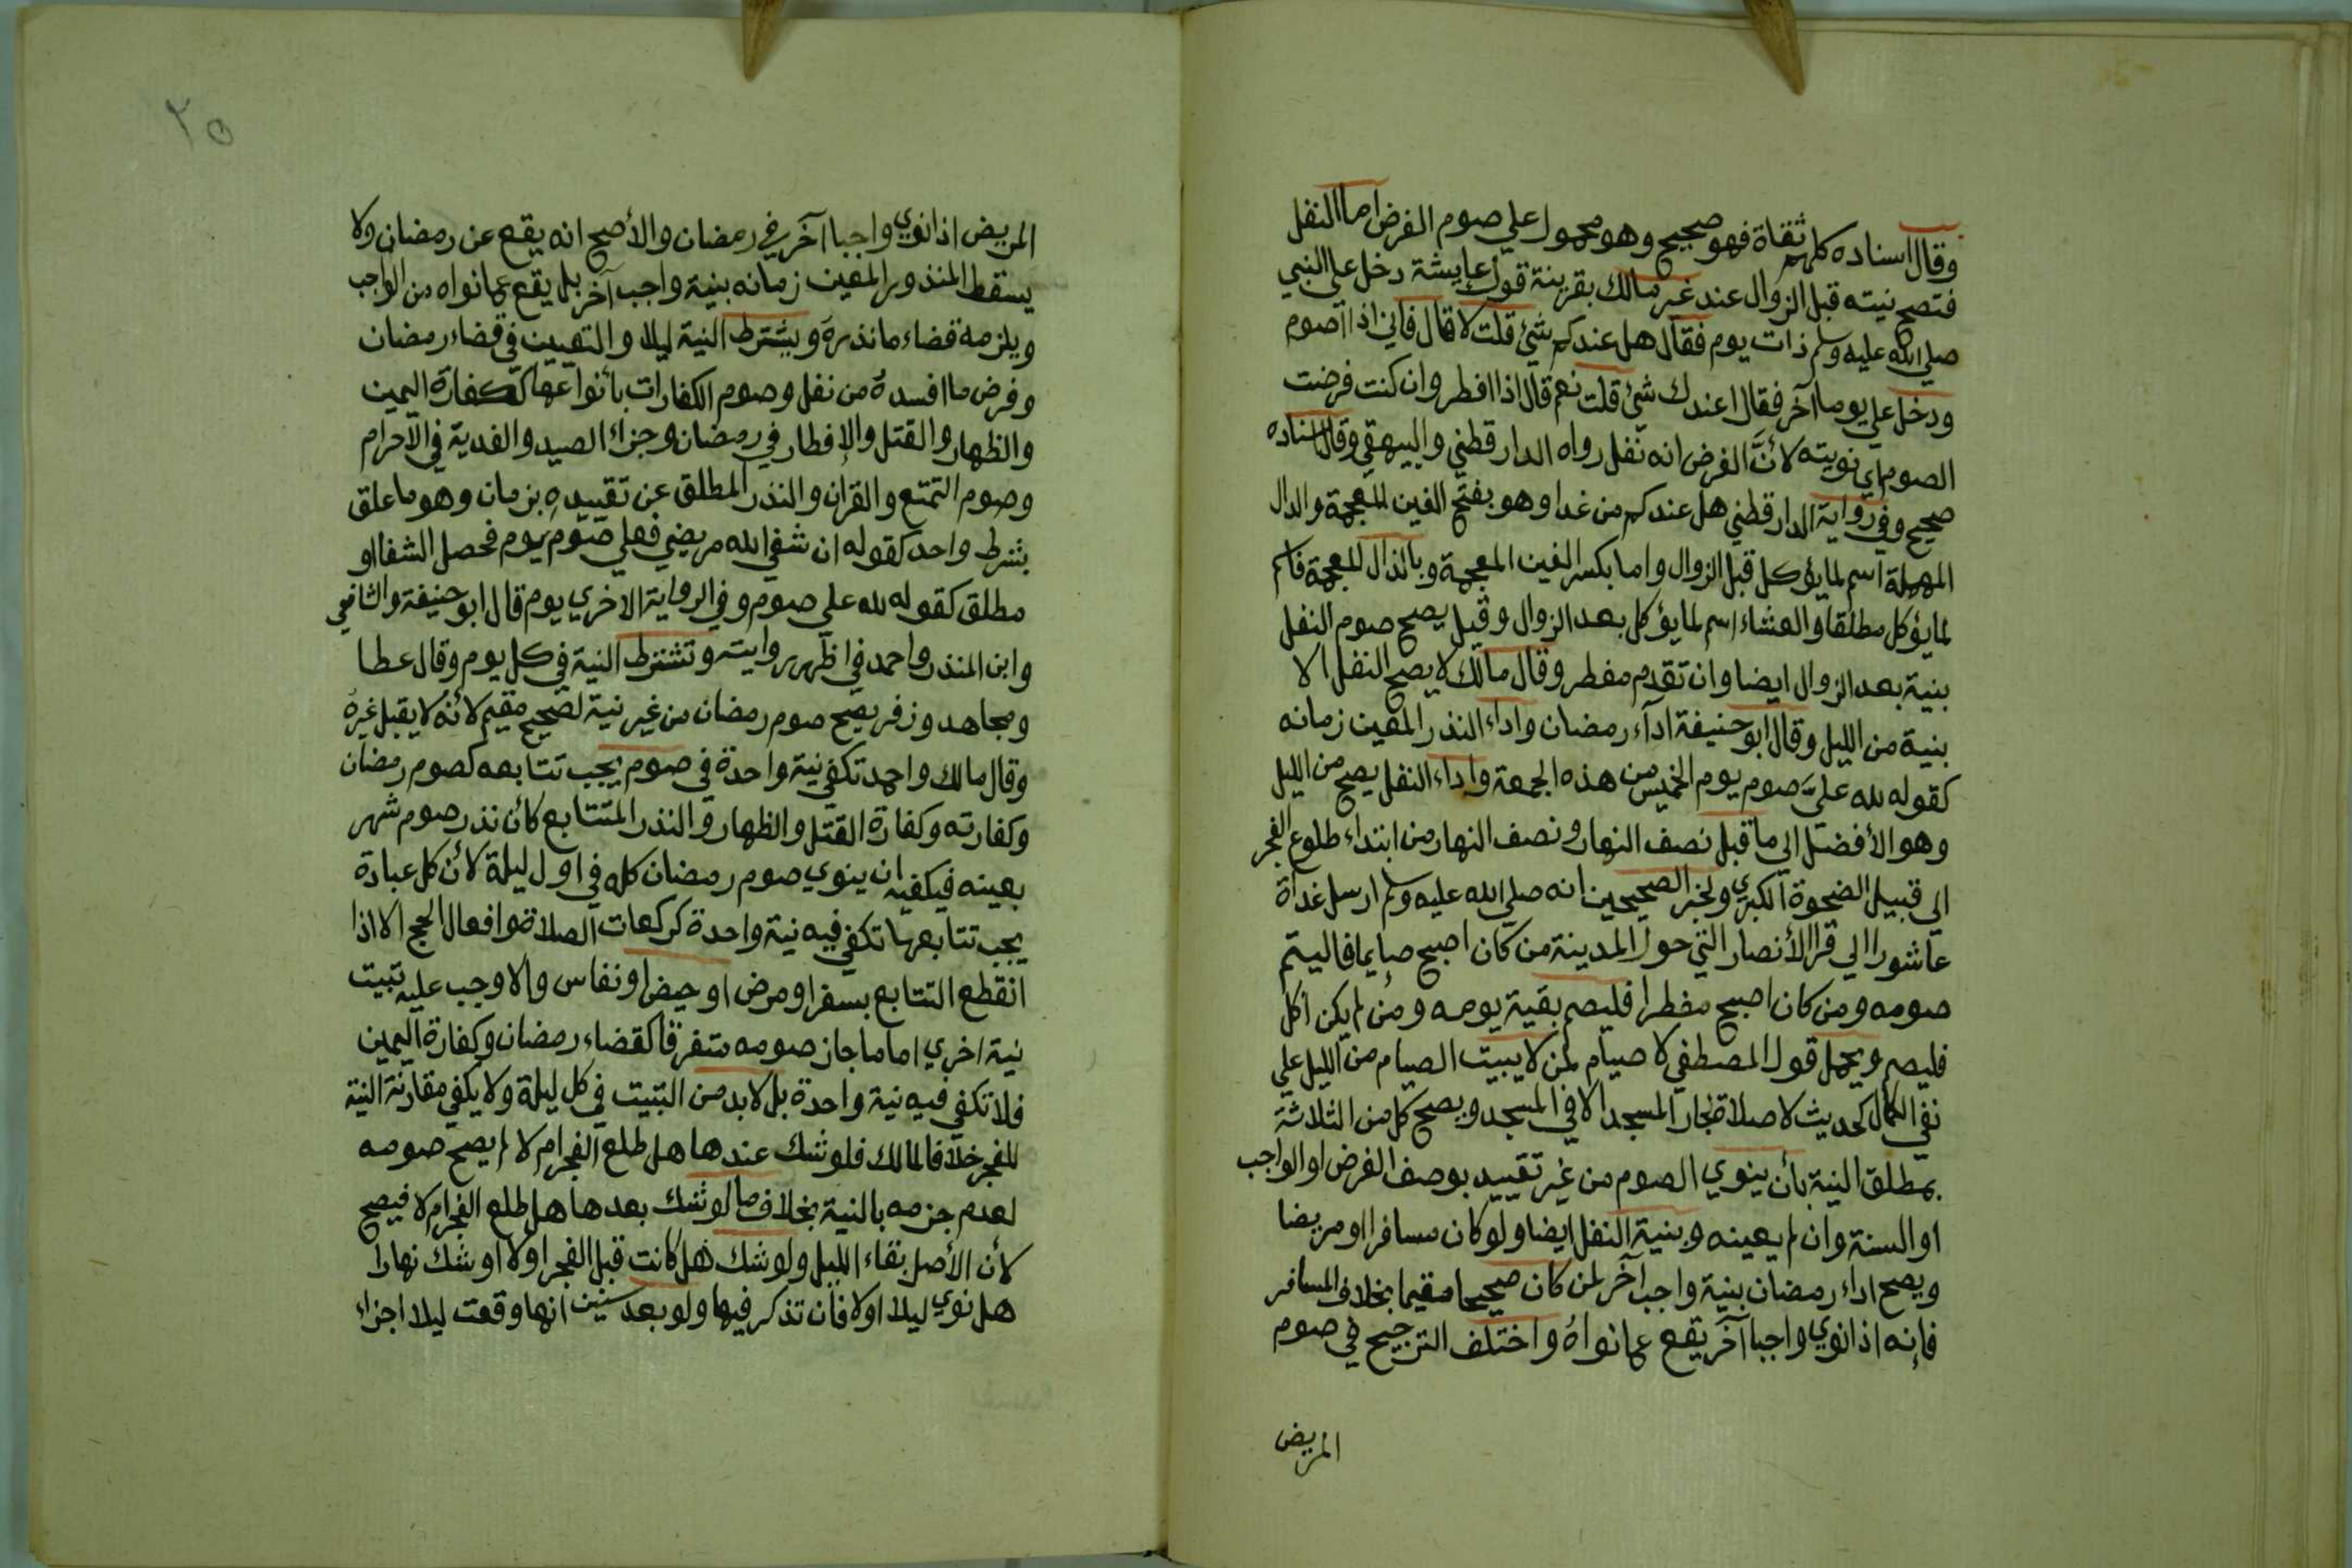 وقال اسناده كلهم ثقاة فهو صحيح وهو محمول علي صوم الفرض اما النفل
فتصح نيته قبل الزوال عند غير مالك بقرينة قول عايشة دخل علي النبي
صلي الله عليه وسلم ذات يوم فقال هل عندكم شئ قلت لا قال فاني اذا اصوم
ودخل علي يوما آخر فقال اعندك شئ قلت نعم قال اذا افطر وان كنت فرضت
الصوم اي نويته لأنَّ الفرض انه نفل رواه الدارقطني والبيهقي وقال اسناده
صحيح وفي رواية الدارقطني هل عندكم من غدا وهو بفتح الغين المعجمة والدال
المهملة اسم لما يؤكل قبل الزوال واما بكسر الغين المعجمة وبالذال المعجمة فاسم
لما يؤكل مطلقا والعشاء اسم لما يؤكل بعد الزوال وقيل يصح صوم النفل
بنية بعد الزوال ايضا وان تقدم مفطر وقال مالك لا يصح النفل الا
بنية من الليل وقال ابو حنيفة اداء رمضان واداء النذر المعين زمانه
كقوله لله عليَّ صوم يوم الخميس من هذه الجمعة واداء النفل يصح من الليل
وهو الأفضل الي ما قبل نصف النهار ونصف النهار من ابتداء طلوع الفجر
الي قبيل الضحوة الكبري ولخبر الصحيحين انه صلي الله عليه وسلم ارسل غداة
عاشورا الي قرا الأنصار التي حول المدينة من كان اصبح صايما فاليتم
صومه ومن كان اصبح مفطرا فليصم بقية يومه ومن لم يكن اكل
فليصم ويحمل قول المصطفي لا صيام لمن لا يبيت الصيام من الليل علي
نفي الكمال كحديث لا صلاة لجار المسجد الا في المسجد ويصح كل من الثلاثة
بمطلق النية بأن ينوي الصوم من غير تقييد بوصف الفرض او الواجب
او السنة وان لم يعينه وبنية النفل ايضا ولو كان مسافرا او مريضا
ويصح اداء رمضان بنية واجب آخر لمن كان صحيحا مقيما بخلاف المسافر
فإنه اذا نوي واجبا آخر يقع عما نواهُ واختلف الترجيح في صوم
المريض
٢٥
المريض اذا نوي واجبا آخر في رمضان والأصح انه يقع عن رمضان ولا
يسقط المنذور المعين زمانه بنية واجب آخر بل يقع عما نواه من الواجب
ويلزمه قضاء ما نذره ويشترط النية ليلا والتعيين في قضاء رمضان
وفرض ما افسدهُ من نفل وصوم الكفارات بأنواعها ككفارة اليمين
والظهار والقتل والإفطار في رمضان وجزاء الصيد والفدية في الاحرام
وصوم التمتع والقران والنذر المطلق عن تقييده بزمان وهو ما علق
بشرط واحد كقوله ان شفي الله مريضي فعلي صوم يوم فحصل الشفا او
مطلق كقوله لله علي صوم وفي الرواية الاخري يوم قال ابو حنيفة والشافعي
وابن المنذر واحمد في اظهر روايته وتشترط النية في كل يوم وقال عطا
ومجاهد وزفر يصح صوم رمضان من غير نية لصحيح مقيم لأنه لا يقبل غيرهُ
وقال مالك واحمد تكفي نية واحدة في صوم يجب تتابعه كصوم رمضان
وكفارته وكفارة القتل والظهار والنذر المتتابع كأن نذر صوم شهر
بعينه فيكفيه ان ينوي صوم رمضان كله في اول ليلة لأن كل عبادة
يجب تتابعها تكفي فيه نية واحدة كركعات الصلاة وافعال الحج الا اذا
انقطع التتابع بسفر او مرض او حيض او نفاس والا وجب عليه تبيت
نية اخري اما ما جاز صومه متفرقا كقضاء رمضان وكفارة اليمين
فلا تكفي فيه نية واحدة بل لابد من التبيت في كل ليلة ولا يكفي مقارنة النية
للفجر خلافا لمالك فلو شك عندها هل طلع الفجر ام لا لم يصح صومه
لعدم جزمه بالنية بخلاف ما لو شك بعدها هل طلع الفجر ام لا فيصح
لأن الأصل بقاء الليل ولو شك هل كانت قبل الفجر اولا او شك نهارا
هل نوي ليلا اولا فان تذكر فيها ولو بعد سنين انها وقعت ليلا اجزاء